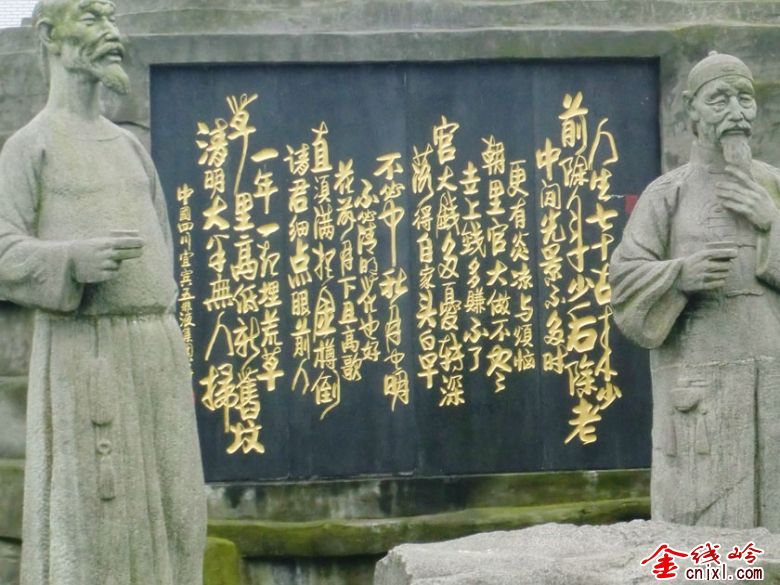 人生七十古来少
前除年少后除老
中间光景不多时
更有炎凉与煩惱
朝里官大做不尽
世上錢多賺不了
官大錢多憂转深
落得自家头白早
不必中秋月也明
不必清明花也好
花前月下且高歌
直须满把金樽倒
请君细点眼前人
一年一起埋荒草
草里高低新舊坟
清明大半無人掃
中國四川宜宾五粮液集团
金线岭
cnixl.com